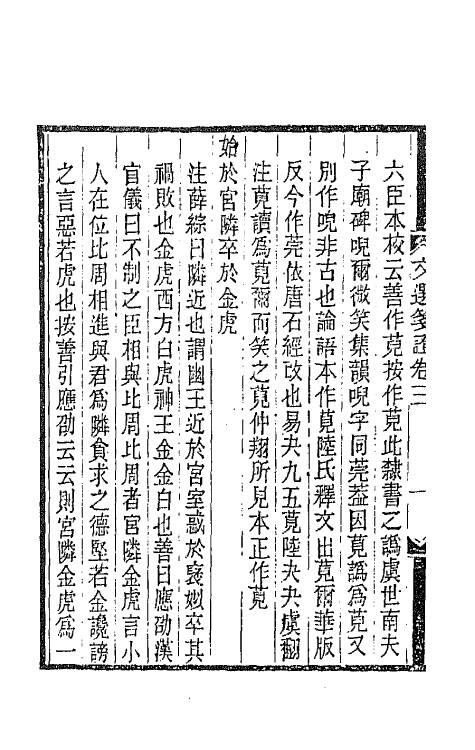 文選箋證卷二
一
六臣本校云善作莧按作莧此隸書之譌虞世南夫
子廟碑哯爾微笑集韻哯字同莞葢因莧譌爲莧又
別作哯非古也論語本作莧陸氏釋文出莧爾華版
反今作莞依唐石經改也易夬九五莧陸夬夬虞翻
注莧讀爲莧爾而笑之莧仲翔所見本正作莧
始於宮隣卒於金虎
注薛綜曰隣近也謂幽王近於宮室惑於襃姒卒其
禍敗也金虎西方白虎神王金金白也善曰應劭漢
官儀曰不制之臣相與比周比周者宮隣金虎言小
人在位比周相進與君爲隣貪求之德堅若金讒謗
之言惡若虎也按善引應劭云云則宮隣金虎爲一